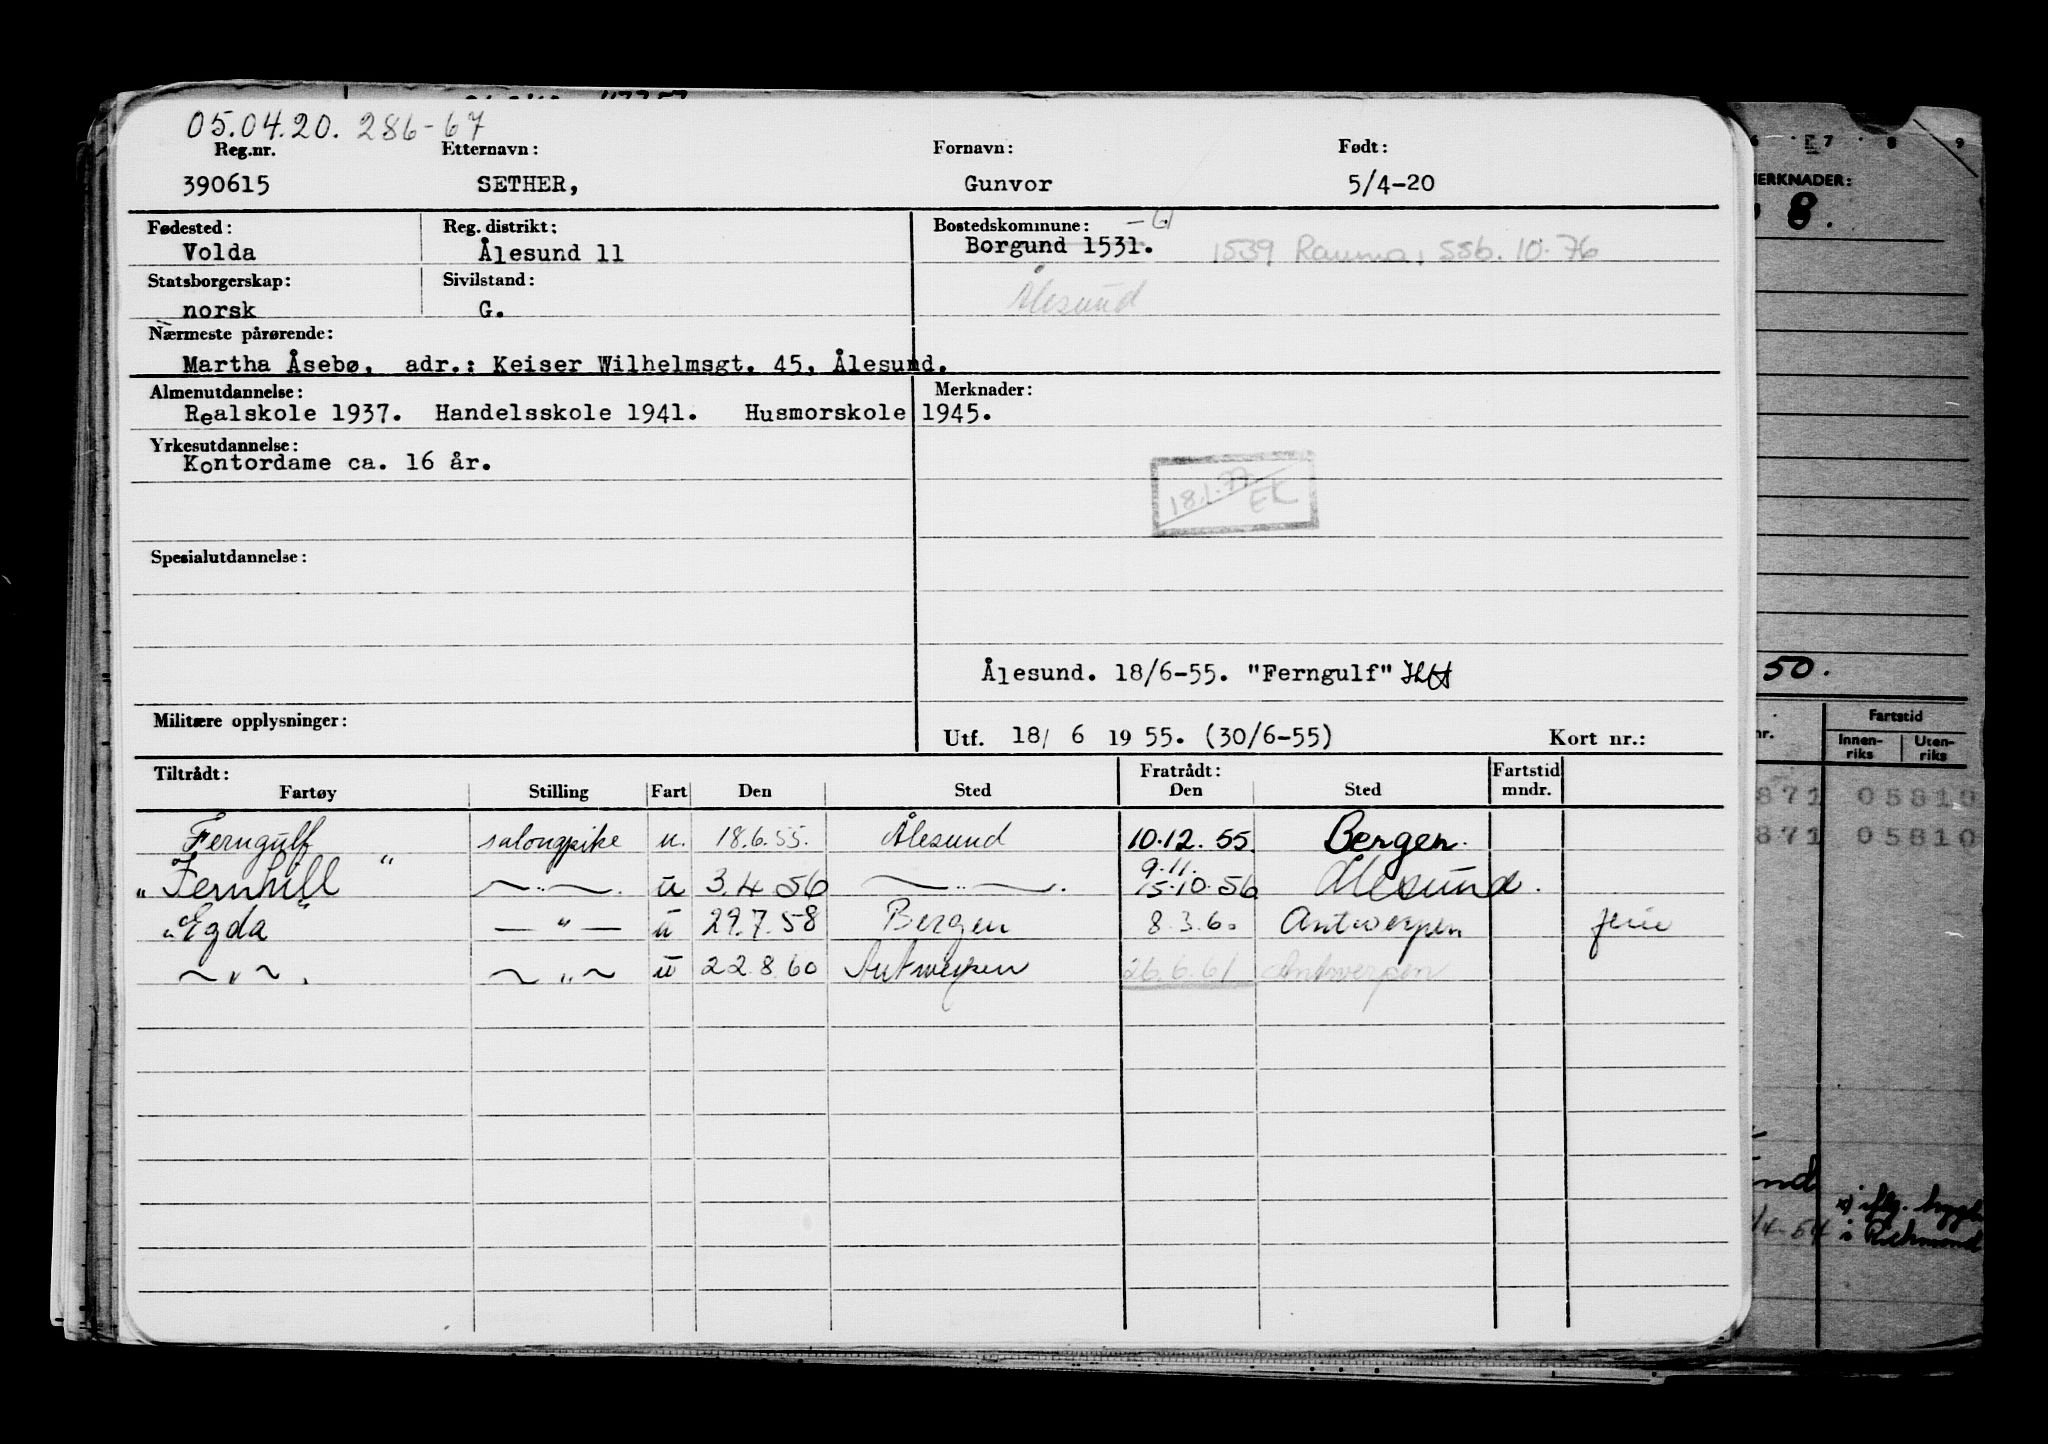 05.04.20. 286-67
Reg.nr. Etternavn: Fornavn: Født:
390615 SETHER, Gunvor 5/4-20
Fødested: Reg. distrikt: Bostedskommune: -61
Volda Ålesund 11 Borgund 1531. 1539 Rauma, SSb. 10.76
Statsborgerskap: Sivilstand: Ålesund
norsk G.
Nærmeste pårørende:
Martha Åsebø, adr.: Keiser Wilhelmsgt. 45, Ålesund.
Almenutdannelse: Merknader:
Realskole 1937. Handelsskole 1941. Husmorskole 1945.
Yrkesutdannelse:
Kontordame ca. 16 år.
18.1.77 EK
Spesialutdannelse:
Ålesund. 18/6-55. "Ferngulf"
Militære opplysninger:
Utf. 18/ 6 1955. (30/6-55) Kort nr.:
Tiltrådt: Fratrådt: Fartstid
Fartøy Stilling Fart Den Sted Den Sted mndr.
Ferngulf salongpike u. 18.6.55. Ålesund 10.12.55 Bergen.
9.11.
"Fernhill" —"—. u 3.4.56 —"—. 15.10.56 Ålesund.
"Egda" —"— u 29.7.58 Bergen 8.3.60 Antwerpen ferie
—"—. —"— u 22.8.60 Antwerpen 26.6.61 Antwerpen
6 7 8 9
MERKNADER:
8.
50.
nr. Fartstid
Innen-riks Uten-riks
871 05810
871 05810
nd
/4-54 i Richmond